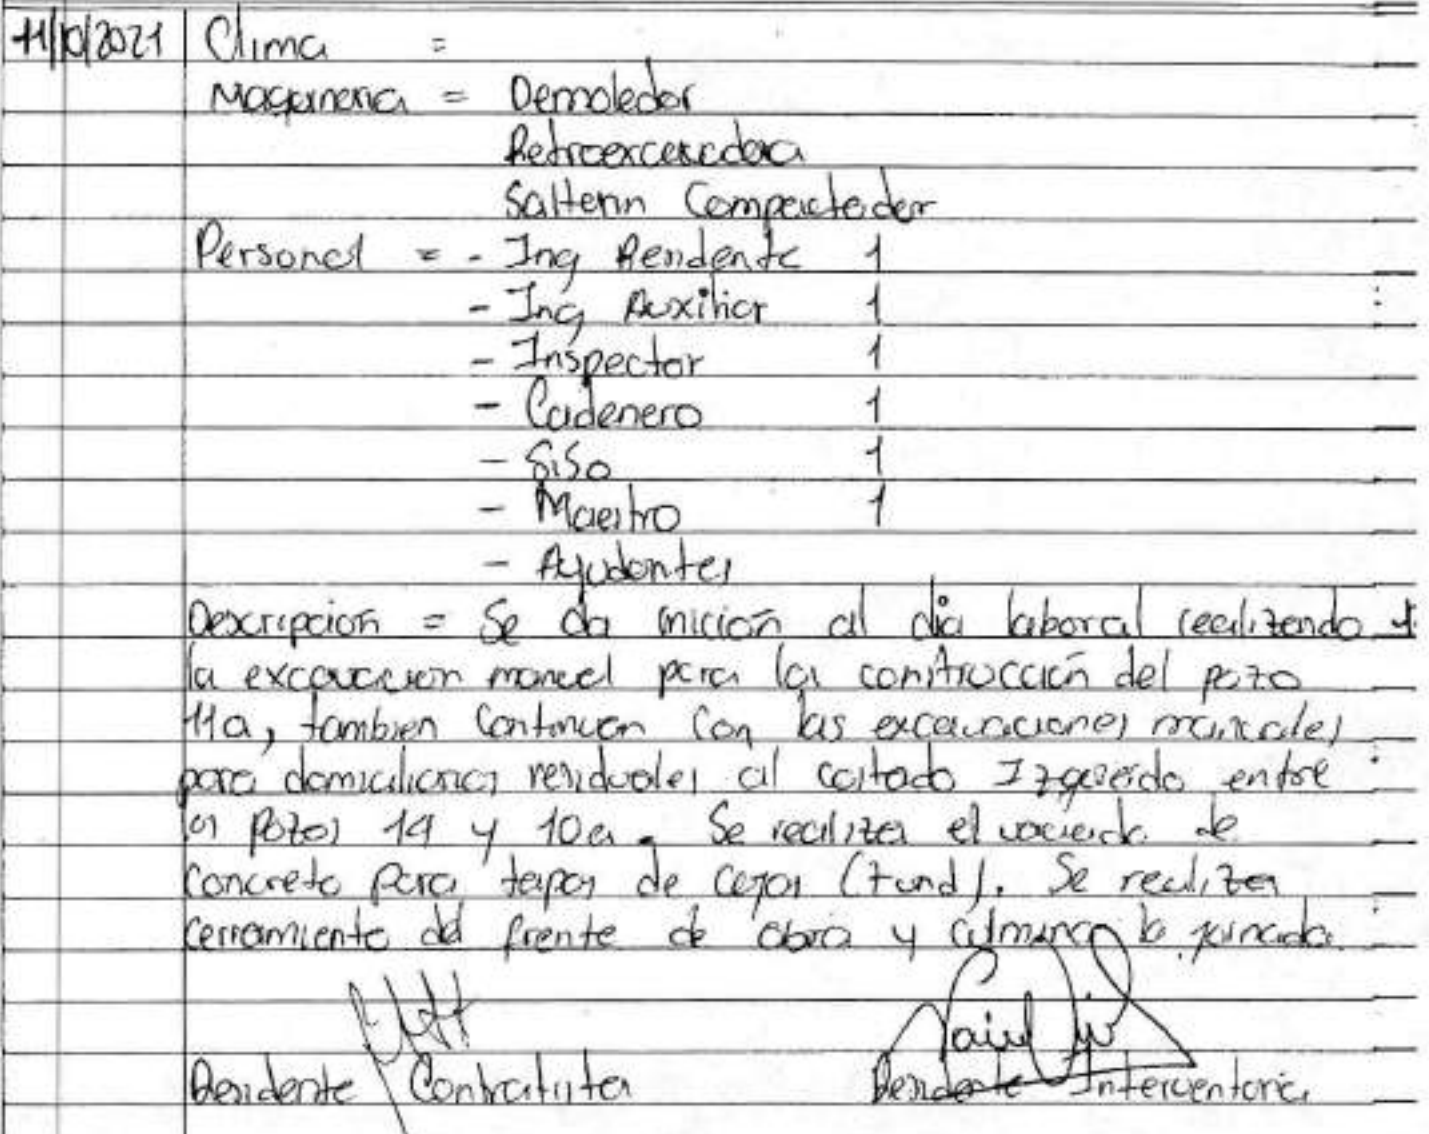 11/10/2021 Clima =
Maquineria = Demoledor
Retroexcavadora
Saltarin Compactador
Personal = - Ing Residente 1
- Ing Auxiliar 1
- Inspector 1
- Cadenero 1
- SiSo 1
- Maestro 1
- Ayudantes
Descripción = Se da inición al dia laboral realizando
la excavacion manual para la construcción del pozo
11a, tambien continuan con las excavaciones manuales
para domiciliarias residuales al costado Izquierdo entre
los pozos 14 y 10a. Se realiza el vaciado de
concreto para tapas de cajas (7und). Se realiza
cerramiento del frente de obra y culmina la jornada.
Residente Contratista Residente Interventoria